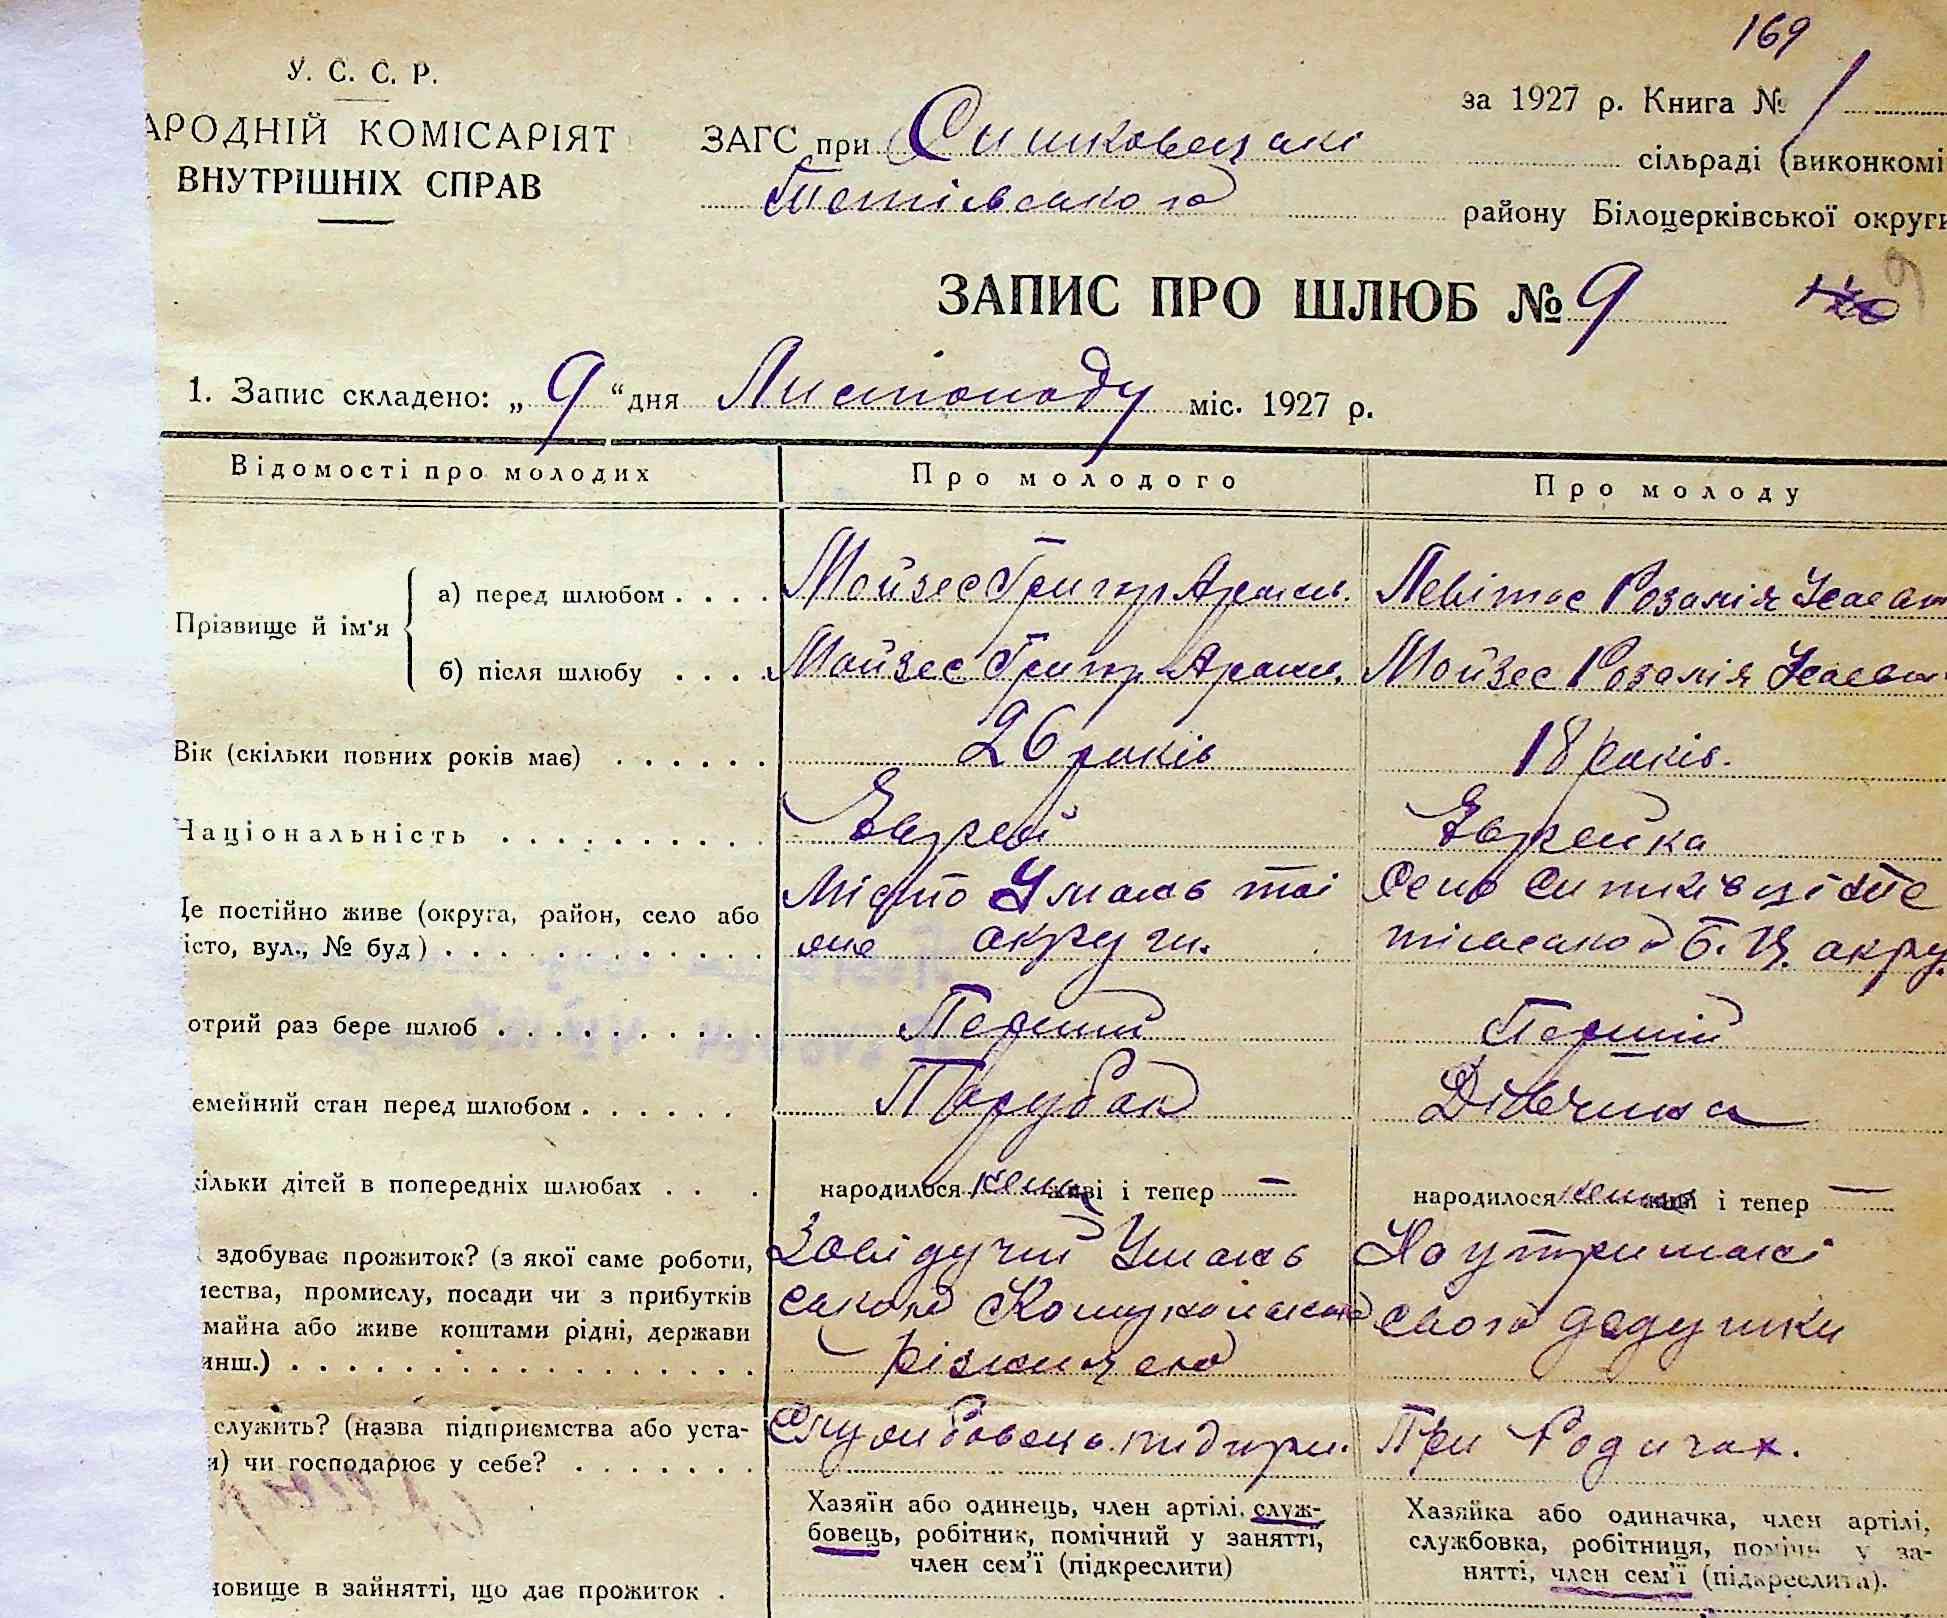 169
У. С. С. Р.
АРОДНІЙ КОМІСАРІЯТ
ВНУТРІШНІХ СПРАВ
за 1927 р. Книга № 1
ЗАГС при сільраді (виконкомі
Тетіївського району Білоцерківської округи
ЗАПИС ПРО ШЛЮБ № 9
9
1. Запис складено: „ 9 “ дня Листопаду міс. 1927 р.
Відомості про молодих Про молодого Про молоду
Прізвище й ім'я
а) перед шлюбом . . . . Мойзес Григор Арамов. Левітас Розалія
б) після шлюбу . . . . Мойзес Григор Арамов. Мойзес Розалія
Вік (скільки повних років має) . . . . . . 26 років 18 років.
Національність . . . . . . . . . . Єврей Єврейка
Де постійно живе (округа, район, село або Місто Умань тої Село
істо, вул., № буд) . . . . . . . . . . . . . округи. Б. Ц. окру.
отрий раз бере шлюб . . . . . . . . . . Перший Перший
емейний стан перед шлюбом . . . . . . Парубок Дівчина
кільки дітей в попередніх шлюбах . . . народилося нема живі і тепер — народилося нема живі і тепер —
здобуває прожиток? (з якої саме роботи, Завідучий Умань На утриманні
чества, промислу, посади чи з прибутків ского свого дедушки
майна або живе коштами рідні, держави
инш.) . . . . . . . . . . . . . . . . . . різницею
служить? (назва підприємства або уста- Службовець При Родичах.
и) чи господарює у себе? . . . . . . .
Хазяїн або одинець, член артілі, служ- Хазяйка або одиначка, член артілі,
бовець, робітник, помічний у занятті, службовка, робітниця, помічн у за-
член сем'ї (підкреслити) нятті, член сем'ї (підкреслити).
новище в зайнятті, що дає прожиток .